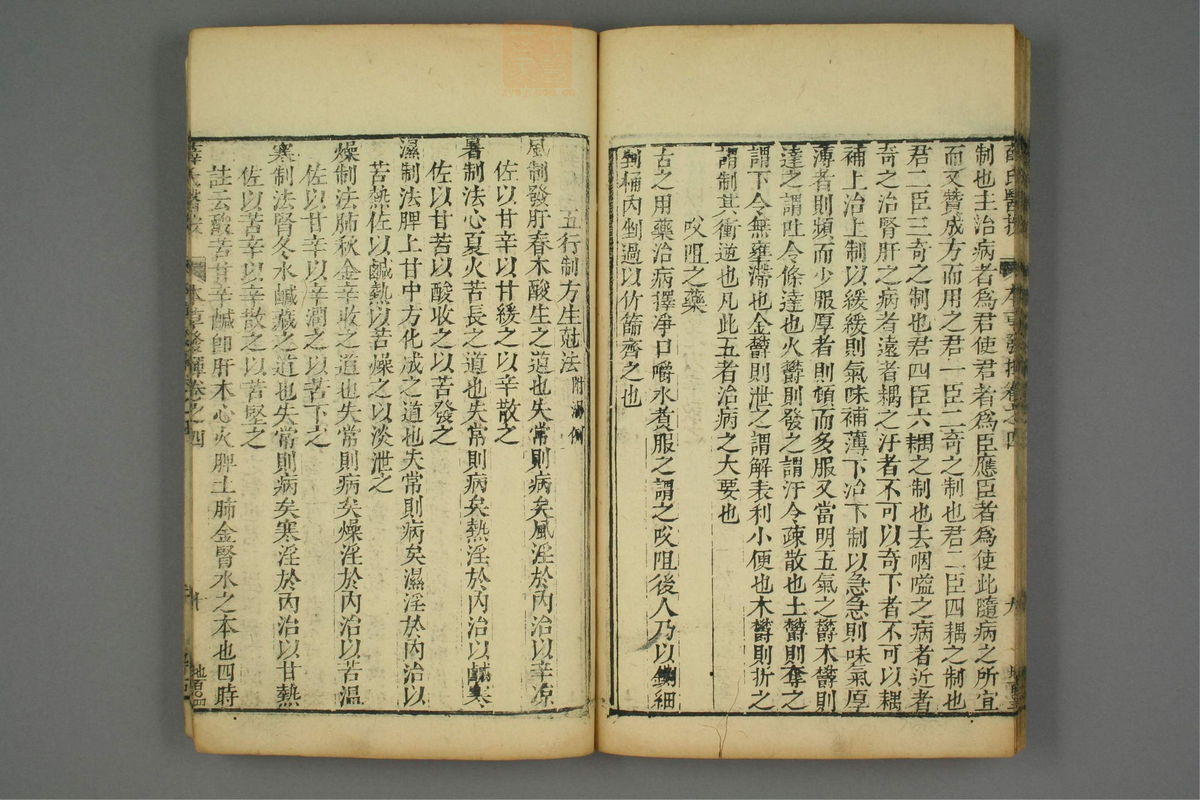 制也主治病者爲君使君者爲臣應臣者爲使此隨病之所宜
而又贊成方而用之君一臣二奇之制也君二臣四耦之制也
君二臣三奇之制也君四臣六耦之制也去咽嗌之病者近者
奇之治腎肝之病者遠者耦之汗者不可以奇下者不可以耦
補上治上制以緩緩則氣味補薄下治下制以急急則味氣厚
薄者則頻而少服厚者則頓而多服又當明五氣之欝木欝則
達之謂吐令條達也火欝則發之謂汗令疎散也土欝則奪之
謂下令無壅滯也金欝則泄之謂解表利小便也木欝則折之
謂制其衝逆也凡此五者治病之大要也
㕮咀之藥
古之用藥治病擇凈口嚼水煮服之謂之㕮咀後人乃以鍘細
剉桶內剉過以竹篩齊之也
薛氏醫按 卷之四 九
五行制方生尅法 附湯例
風制發肝春木酸生之道也失常則病矣風淫於內治以辛凉
佐以甘辛以甘緩之以辛散之
暑制法心夏火苦長之道也失常則病矣熱淫於內治以鹹寒
佐以甘苦以酸收之以苦發之
濕制法脾土甘中方化成之道也失常則病矣濕淫於內治以
苦熱佐以鹹熱以苦燥之以淡泄之
燥制法肺秋金辛收之道也失常則病矣燥淫於內治以苦温
佐以甘辛以辛潤之以苦下之
寒制法腎冬水鹹藏之道也失常則病矣寒淫於內治以甘熱
佐以苦辛以辛散之以苦堅之
註云酸苦甘辛鹹卽肝木心火脾土肺金腎水之本也四時
本草發揮卷之四 十